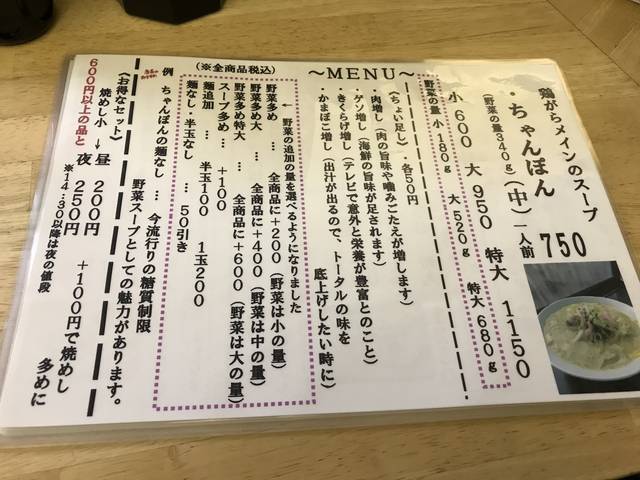 ～MENU～
鶏がらメインのスープ
・ちゃんぽん(中)一人前 750
(野菜の量340g)
小 600 大 950 特大 1150
野菜の量 小 180g 大 520g 特大 680g
(ちょい足し)・各50円
・肉増し(肉の旨味や噛みごたえが増します)
・ゲソ増し(海鮮の旨味が足されます)
・きくらげ増し(テレビで意外と栄養が豊富とのこと)
・かまぼこ増し(出汁が出るので、トータルの味を
底上げしたい時に)
(※全商品税込)
← 野菜の追加の量を選べるようになりました
野菜多め … 全商品に+200(野菜は小の量)
野菜多め大 … 全商品に+400(野菜は中の量)
野菜多め特大 … 全商品に+600(野菜は大の量)
スープ多め … +100
麺追加 … 半玉100 1玉200
麺なし・半玉なし … 50引き
例 ちゃんぽんの麺なし … 今流行りの糖質制限
野菜スープとしての魅力があります。
《お得なセット》
焼めし小 → 昼 200円 +100円で焼めし
多めに
600円以上の品と 夜 250円
※14・30以降は夜の値段